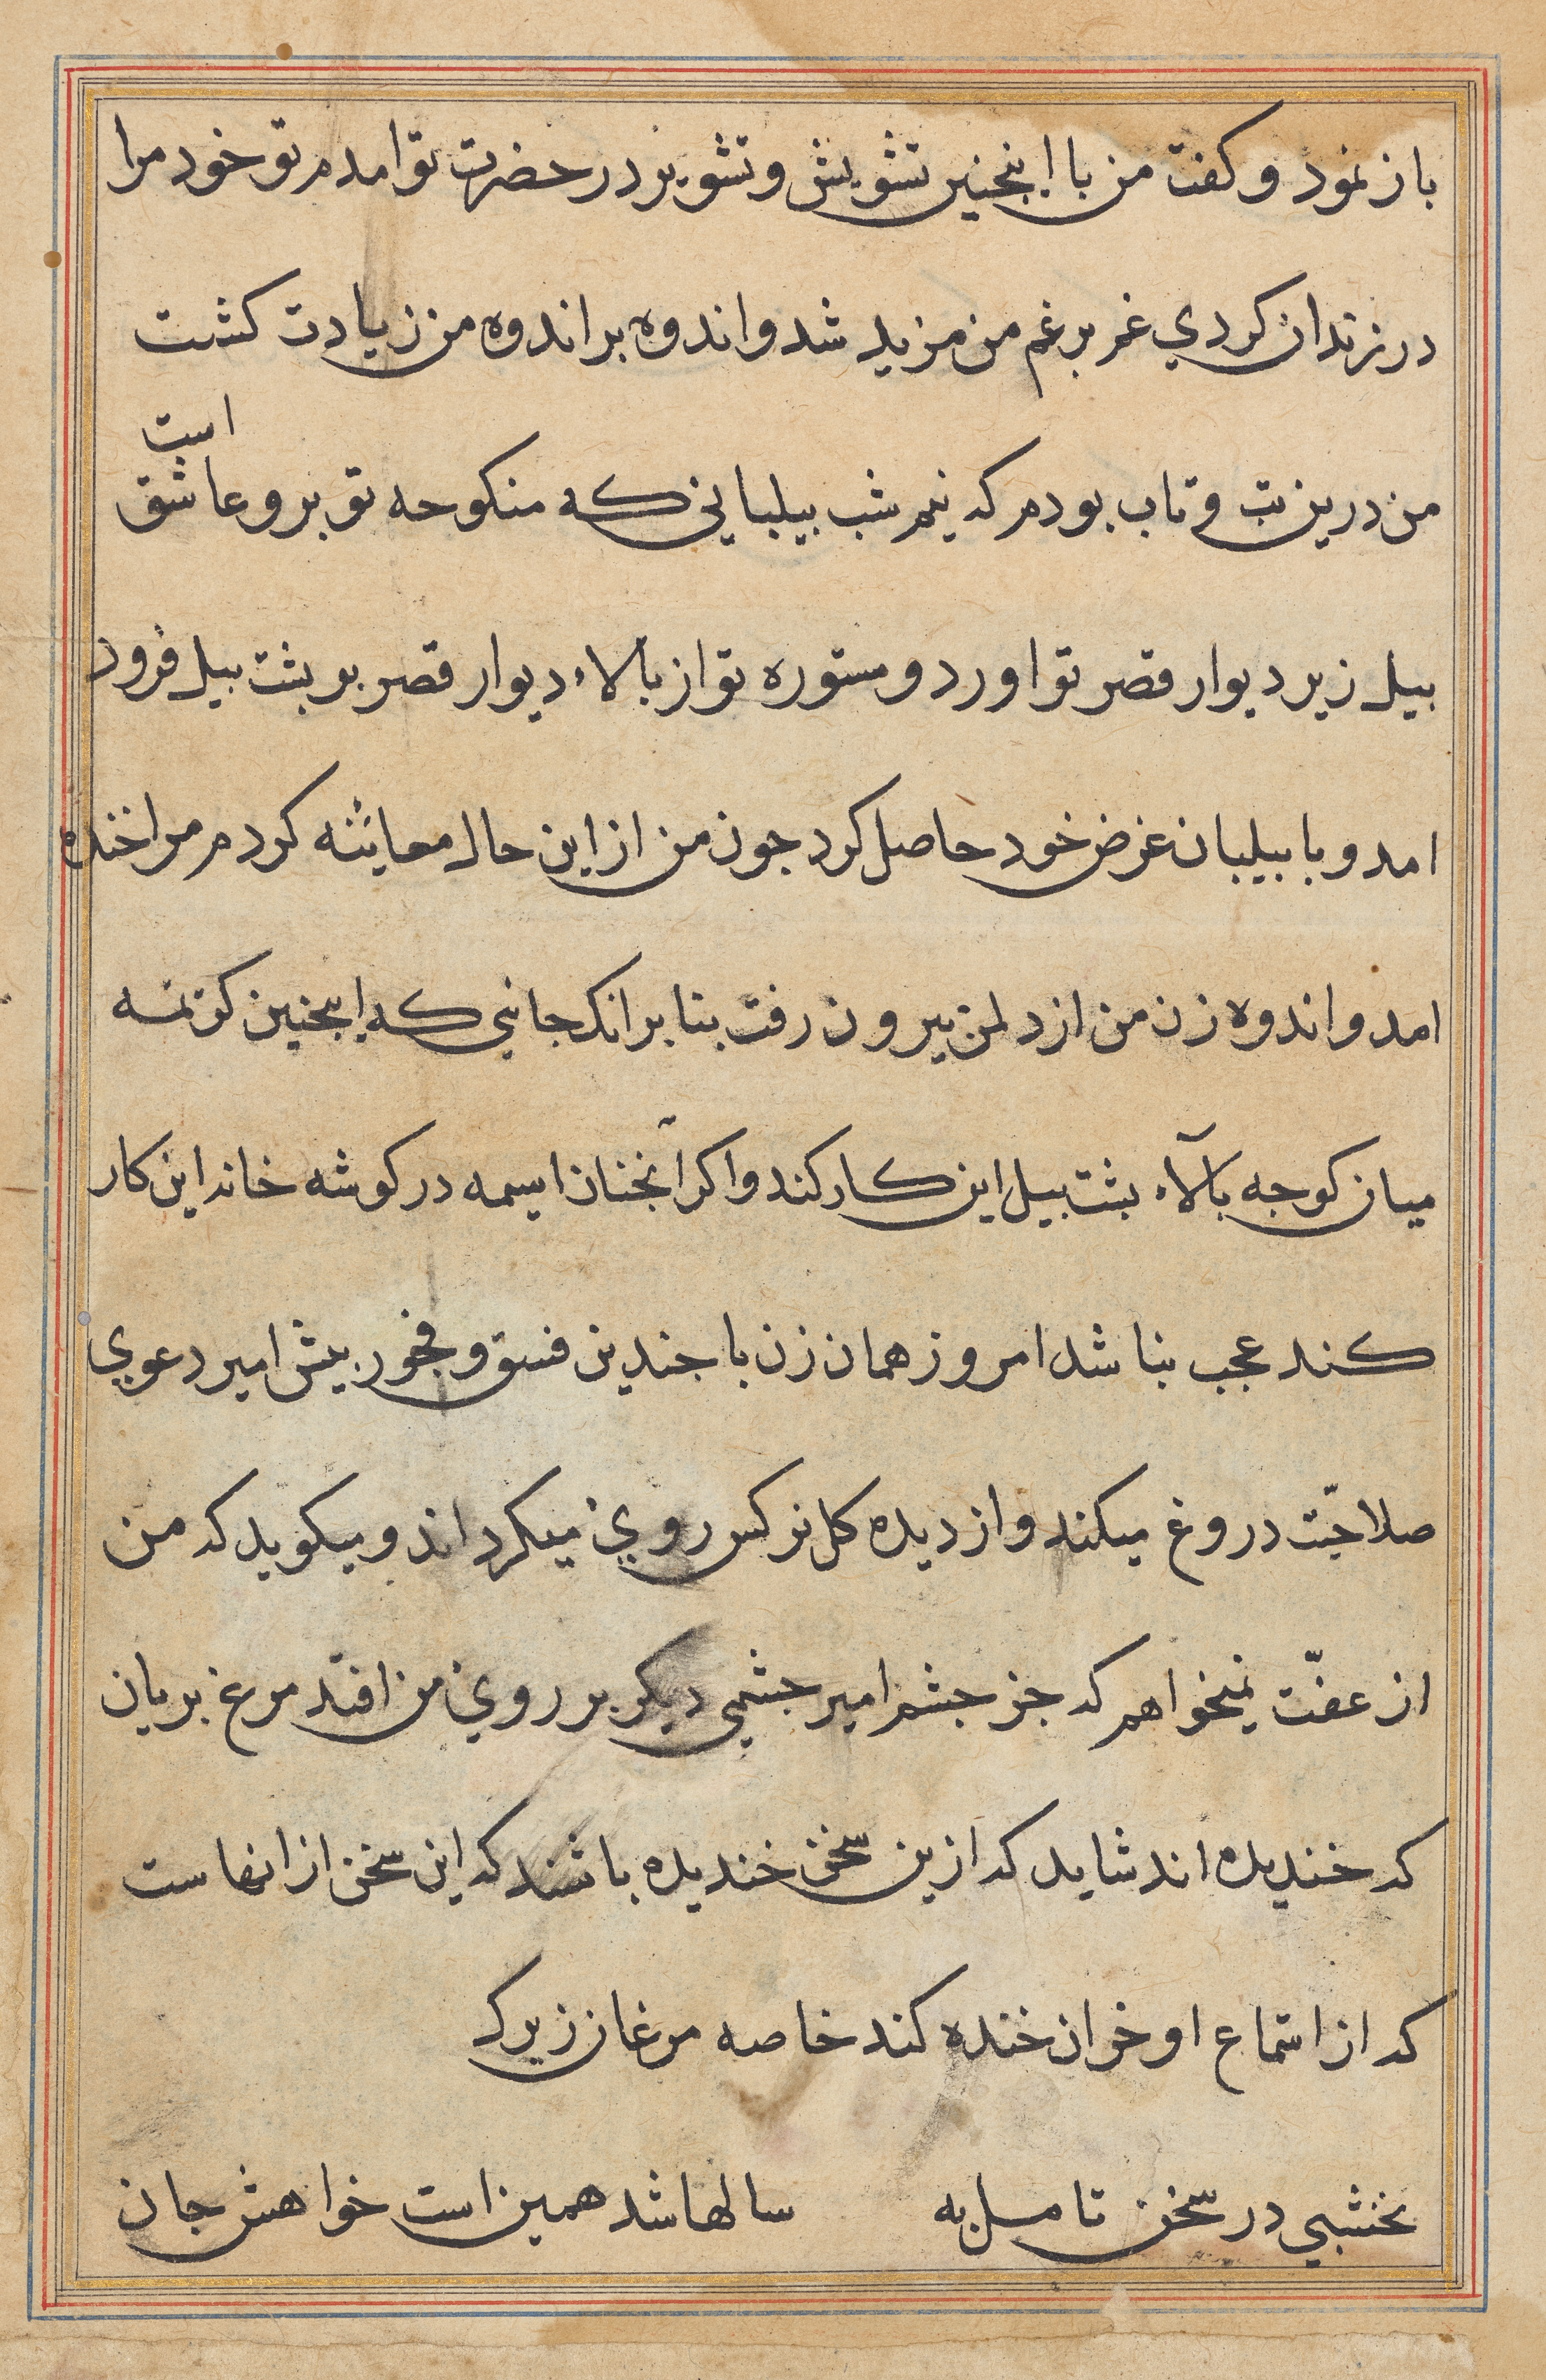 باز نمود و كفت من با اينجنين تشويش و تشوير در حضرت تو امدم تو خود مرا
در زندان كردي غم بر غم من مزيد شد و اندوه بر اندوه من زيادت كشت
است
من درين تب و تاب بودم كه نيم شب بيلباني كه منكوحه تو برو عاشق
بيل زير ديوار قصر تو اورد و مستوره تو از بالاء ديوار قصر بر بشت بيل فرود
امد و با بيلبان غرض خود حاصل كرد جون من از اين حال معاينه كردم مرا خنده
امد و اندوه زن من از دل من بيرون رفت بنا برانك جائي كه اينجنين كريمه
ميان كوجه بالاء بشت بيل اين كار كند و اكر آنجنان ايمه در كوشه خانه اين كار
كند عجب بنا شد امروز همان زن با جندين فسق و فجور بيش امير دعوي
صلاحيّت دروغ ميكند و از ديده كل نركس روي ميكرداند و ميكويد كه من
از عفّت نميخواهم كه جز جشم امير جشمي ديكر بر روي من افتد مرغ بريان
كه خنديده اند شايد كه ازين سخن خنديده باشند كه اين سخن از انهاست
كه از استماع او خران خنده كند خاصه مرغان زيرك
نخشبي در سخن تامل به سالها شد همين است خواهش جان